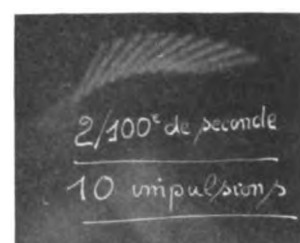 2/100e de seconde
10 impulsions